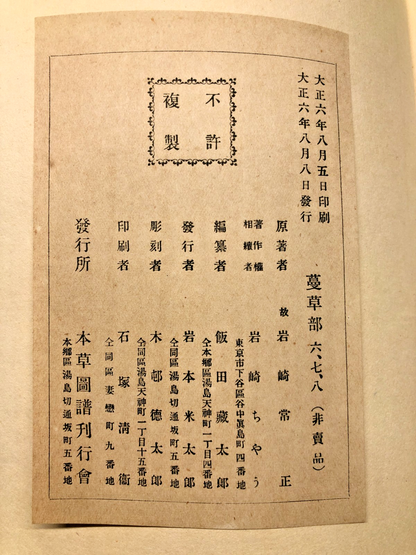 大正六年八月五日印刷
大正六年八月八日發行
蔓草部 六、七、八 (非賣品)
不許
複製
原著者 故 岩崎常正
著作權
相續者 岩崎ちやう
東京市下谷區谷中眞島町四番地
編纂者 飯田藏太郎
仝本鄕區湯島天神町一丁目四番地
發行者 岩本米太郎
仝同區湯島切通坂町五番地
彫刻者 木邨德太郎
仝同區湯島天神町一丁目十五番地
印刷者 石塚清衛
仝同區妻戀町九番地
發行所 本草圖譜刊行會
本鄕區湯島切通坂町五番地